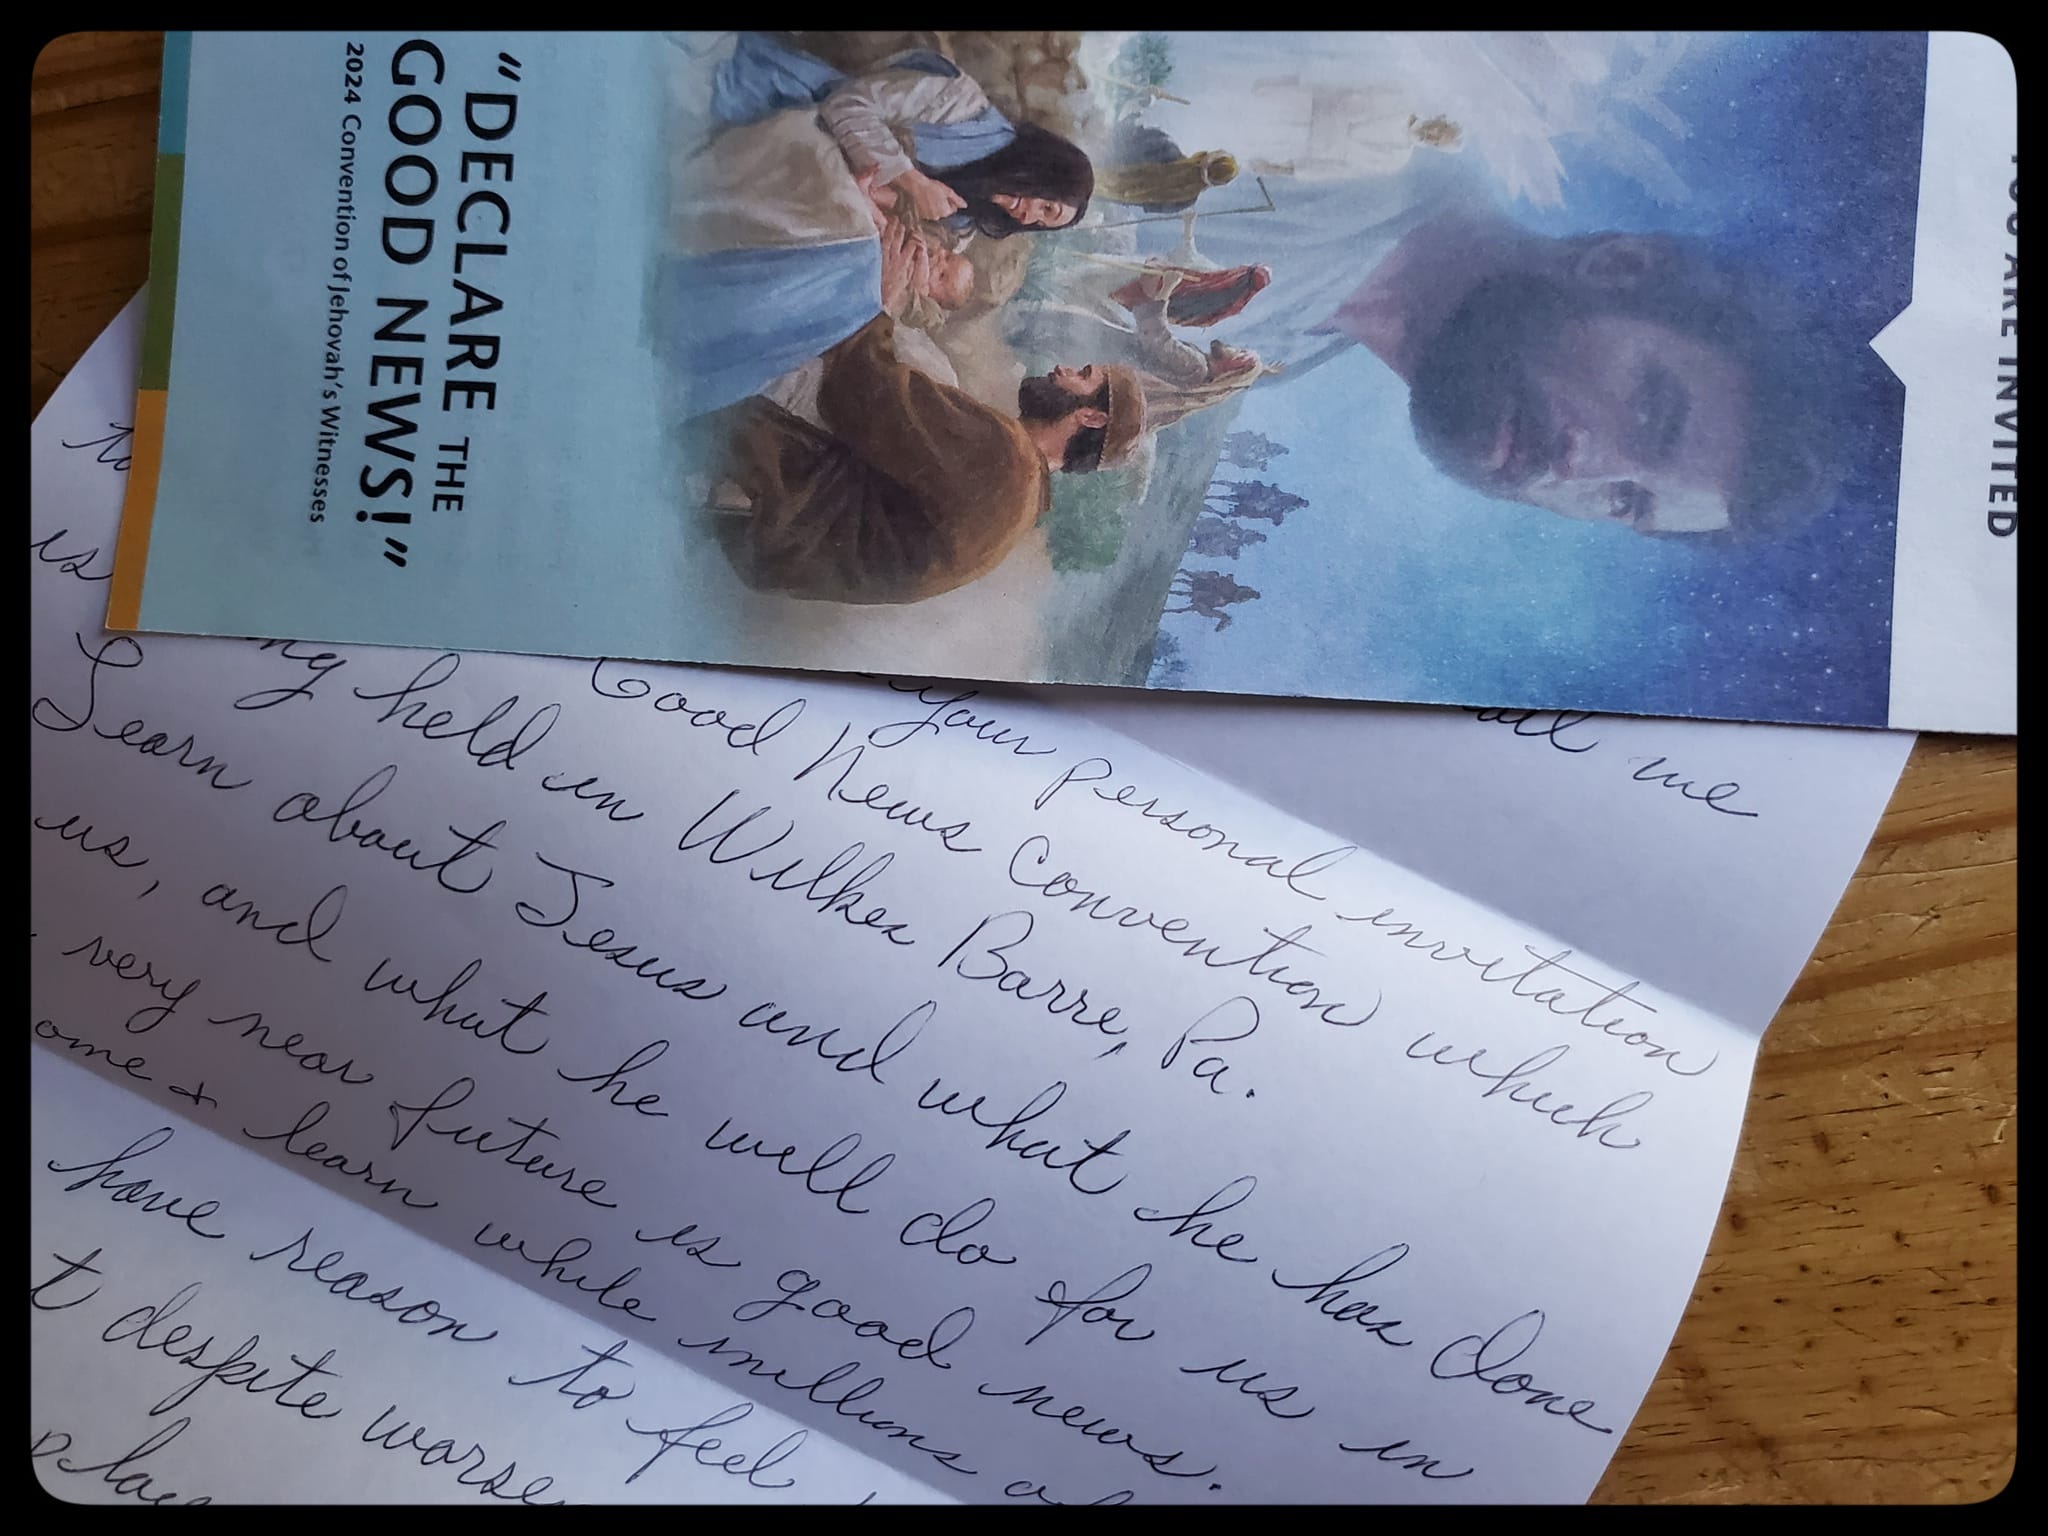 YOU ARE INVITED
"DECLARE THE
GOOD NEWS!"
2024 Convention of Jehovah's Witnesses
me
your personal invitation
to Good News Convention which
is held in Wilkes Barre, Pa.
Learn about Jesus and what he has done
us, and what he will do for us in
very near future is good news.
ome & learn while millions
have reason to feel
t despite worse